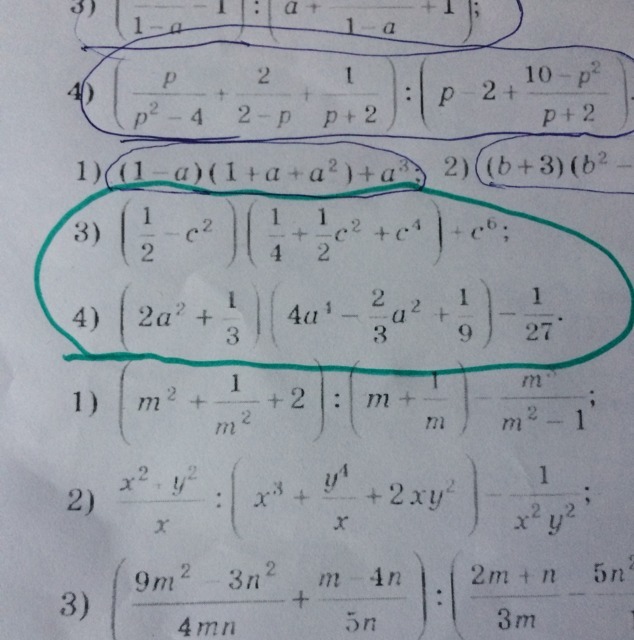 3) ( /(1 − a) − 1) : (a + /(1 − a) + 1);
4) (p/(p² − 4) + 2/(2 − p) + 1/(p + 2)) : (p − 2 + (10 − p²)/(p + 2))
1) (1 − a)(1 + a + a²) + a³; 2) (b + 3)(b² −
3) (1/2 − c²)(1/4 + 1/2c² + c⁴) + c⁶;
4) (2a² + 1/3)(4a⁴ − 2/3a² + 1/9) − 1/27.
1) (m² + 1/m² + 2) : (m + 1/m) − m³/(m² − 1);
2) (x² − y²)/x : (x³ + y⁴/x + 2xy²) − 1/(x²y²);
3) ((9m² − 3n²)/4mn + (m − 4n)/5n) : ((2m + n)/3m − 5n²